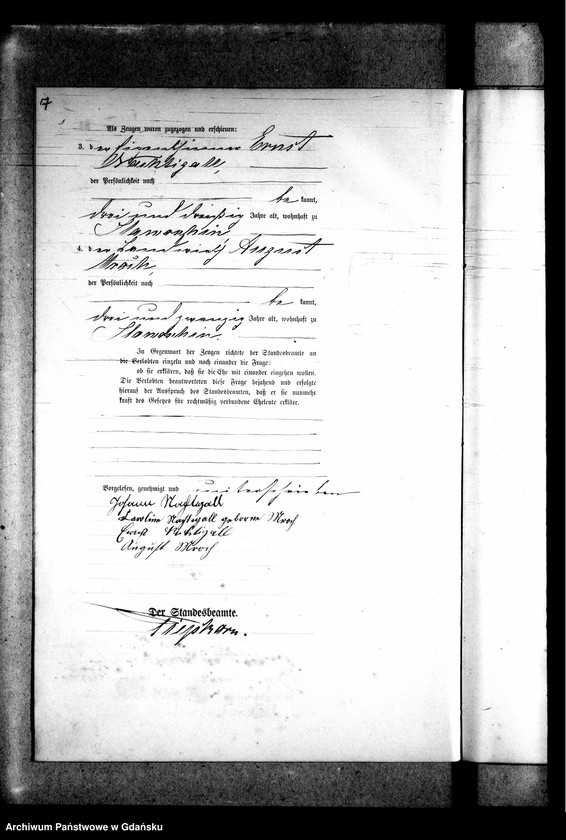 7
Als Zeugen waren zugezogen und erschienen:
3. der Eigenthümer Ernst
Nachtigall,
der Persönlichkeit nach
be kannt,
drei und dreißig Jahre alt, wohnhaft zu
4. der Landwirth August
Mroch,
der Persönlichkeit nach
be kannt,
drei und zwanzig Jahre alt, wohnhaft zu
In Gegenwart der Zeugen richtete der Standesbeamte an
die Verlobten einzeln und nach einander die Frage:
ob sie erklären, daß sie die Ehe mit einander eingehen wollen.
Die Verlobten beantworteten diese Frage bejahend und erfolgte
hierauf der Ausspruch des Standesbeamten, daß er sie nunmehr
kraft des Gesetzes für rechtmäßig verbundene Eheleute erkläre.
Vorgelesen, genehmigt und unterschrieben
Johann Nachtigall
Karoline Nachtigall geborne Mroch
Ernst Nachtigall
August Mroch
Der Standesbeamte.
Archiwum Państwowe w Gdańsku